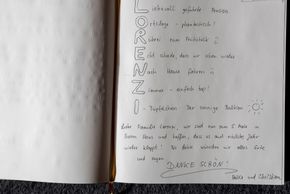 Liebevoll geführte Pension
Ortslage - phantastisch!
Rührei zum Frühstück :)
Echt schade, dass wir schon wieder
Nach Hause fahren :(
Zimmer - einfach top!
I-Tüpfelchen: Der sonnige Balkon
Liebe Familie Lorenzi, wir sind nun zum 5. Mal in
Ihrem Haus und hoffen, dass es auch nächstes Jahr
wieder klappt! Bis dahin wünschen wir alles Gute
und sagen DANKE SCHÖN!
Christian